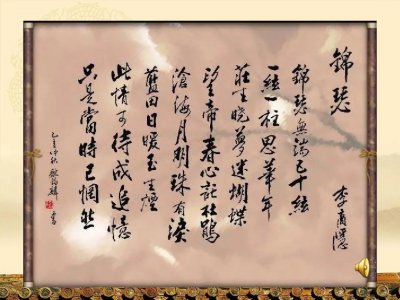 錦瑟
李商隱
錦瑟無端五十絃
一絃一柱思華年
莊生曉夢迷蝴蝶
望帝春心託杜鵑
滄海月明珠有淚
藍田日暖玉生煙
此情可待成追憶
只是當時已惘然
乙亥仲秋 書